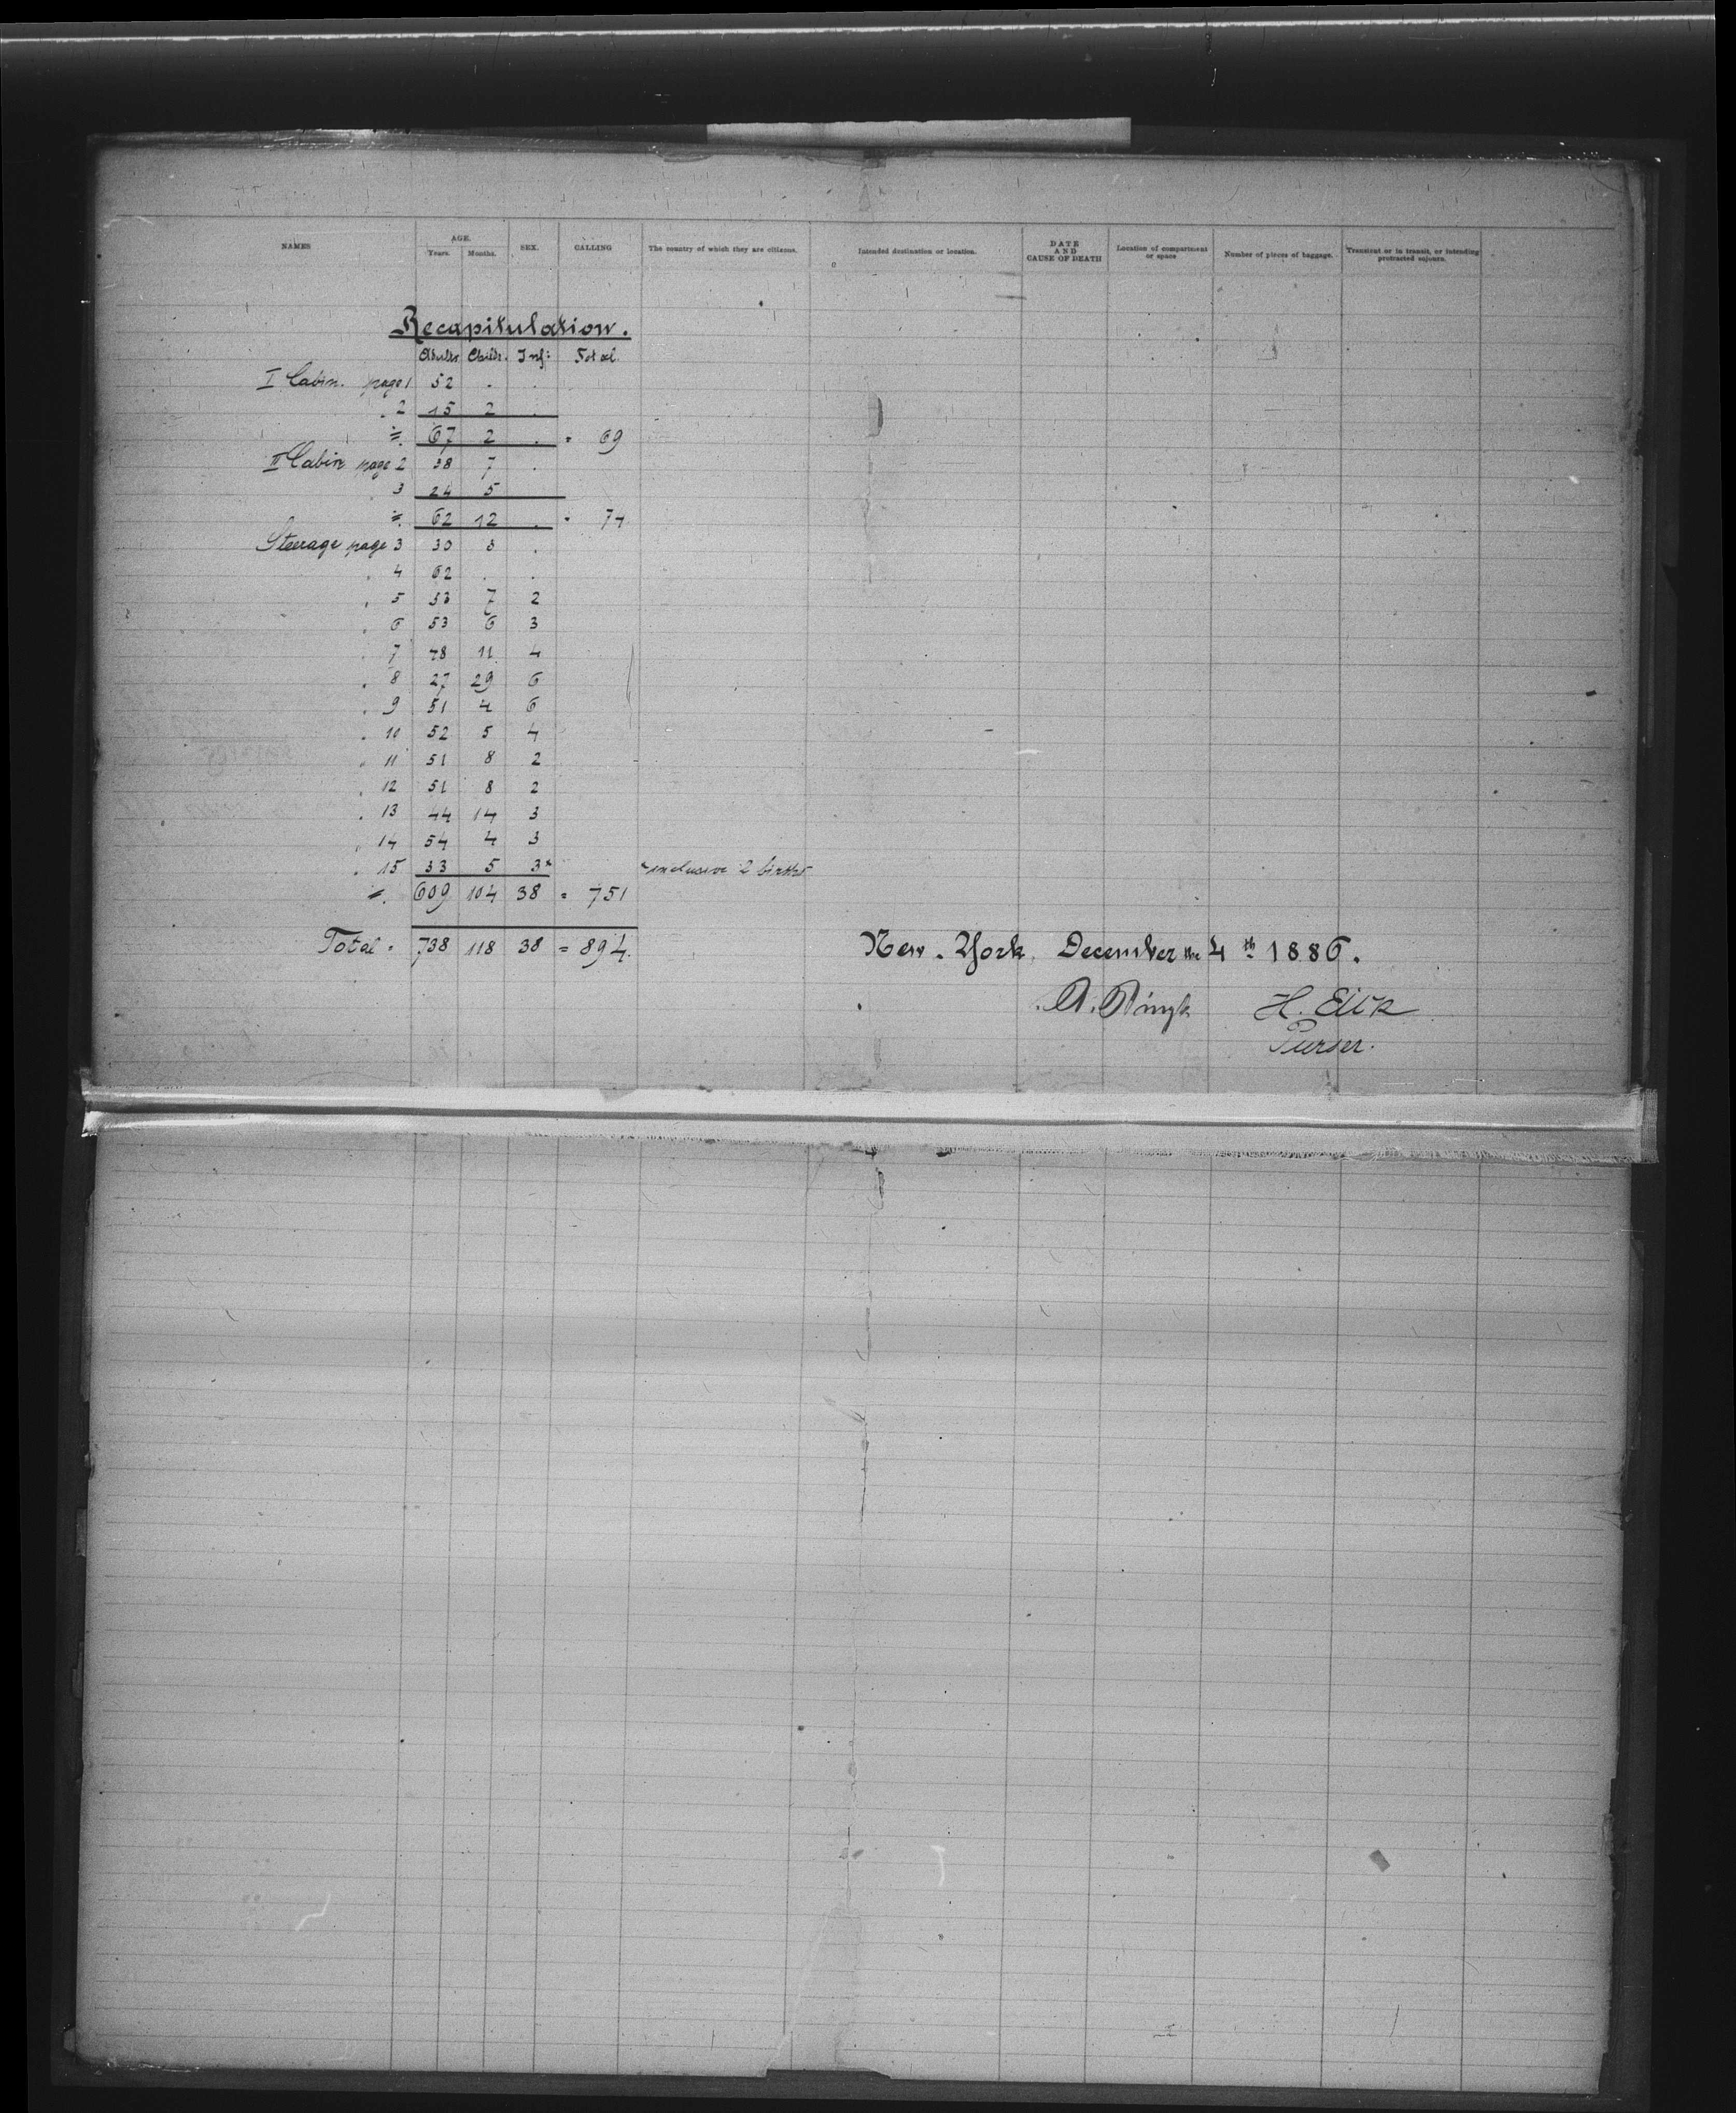 NAMES AGE. Years. Months. SEX. CALLING The country of which they are citizens. Intended destination or location. DATE AND CAUSE OF DEATH Location of compartment or space Number of pieces of baggage. Transient or in transit, or intending protracted sojourn.
Recapitulation.
Adults Childr. Inf: Total
I Cabin. page 1 52 . .
" 2 15 2 .
=. 67 2 . = 69
II Cabin page 2 38 7 .
" 3 24 5
=. 62 12 . = 74
Steerage page 3 30 3 .
" 4 62 . .
" 5 53 7 2
" 6 53 6 3
" 7 48 11 4
" 8 27 29 6
" 9 51 4 6
" 10 52 5 4
" 11 51 8 2
" 12 51 8 2
" 13 44 14 3
" 14 54 4 3
" 15 33 5 3* *inclusive 2 births
=. 609 104 38 = 751
Total = 738 118 38 = 894.
New-York, December the 4th 1886.
H.
Purser.